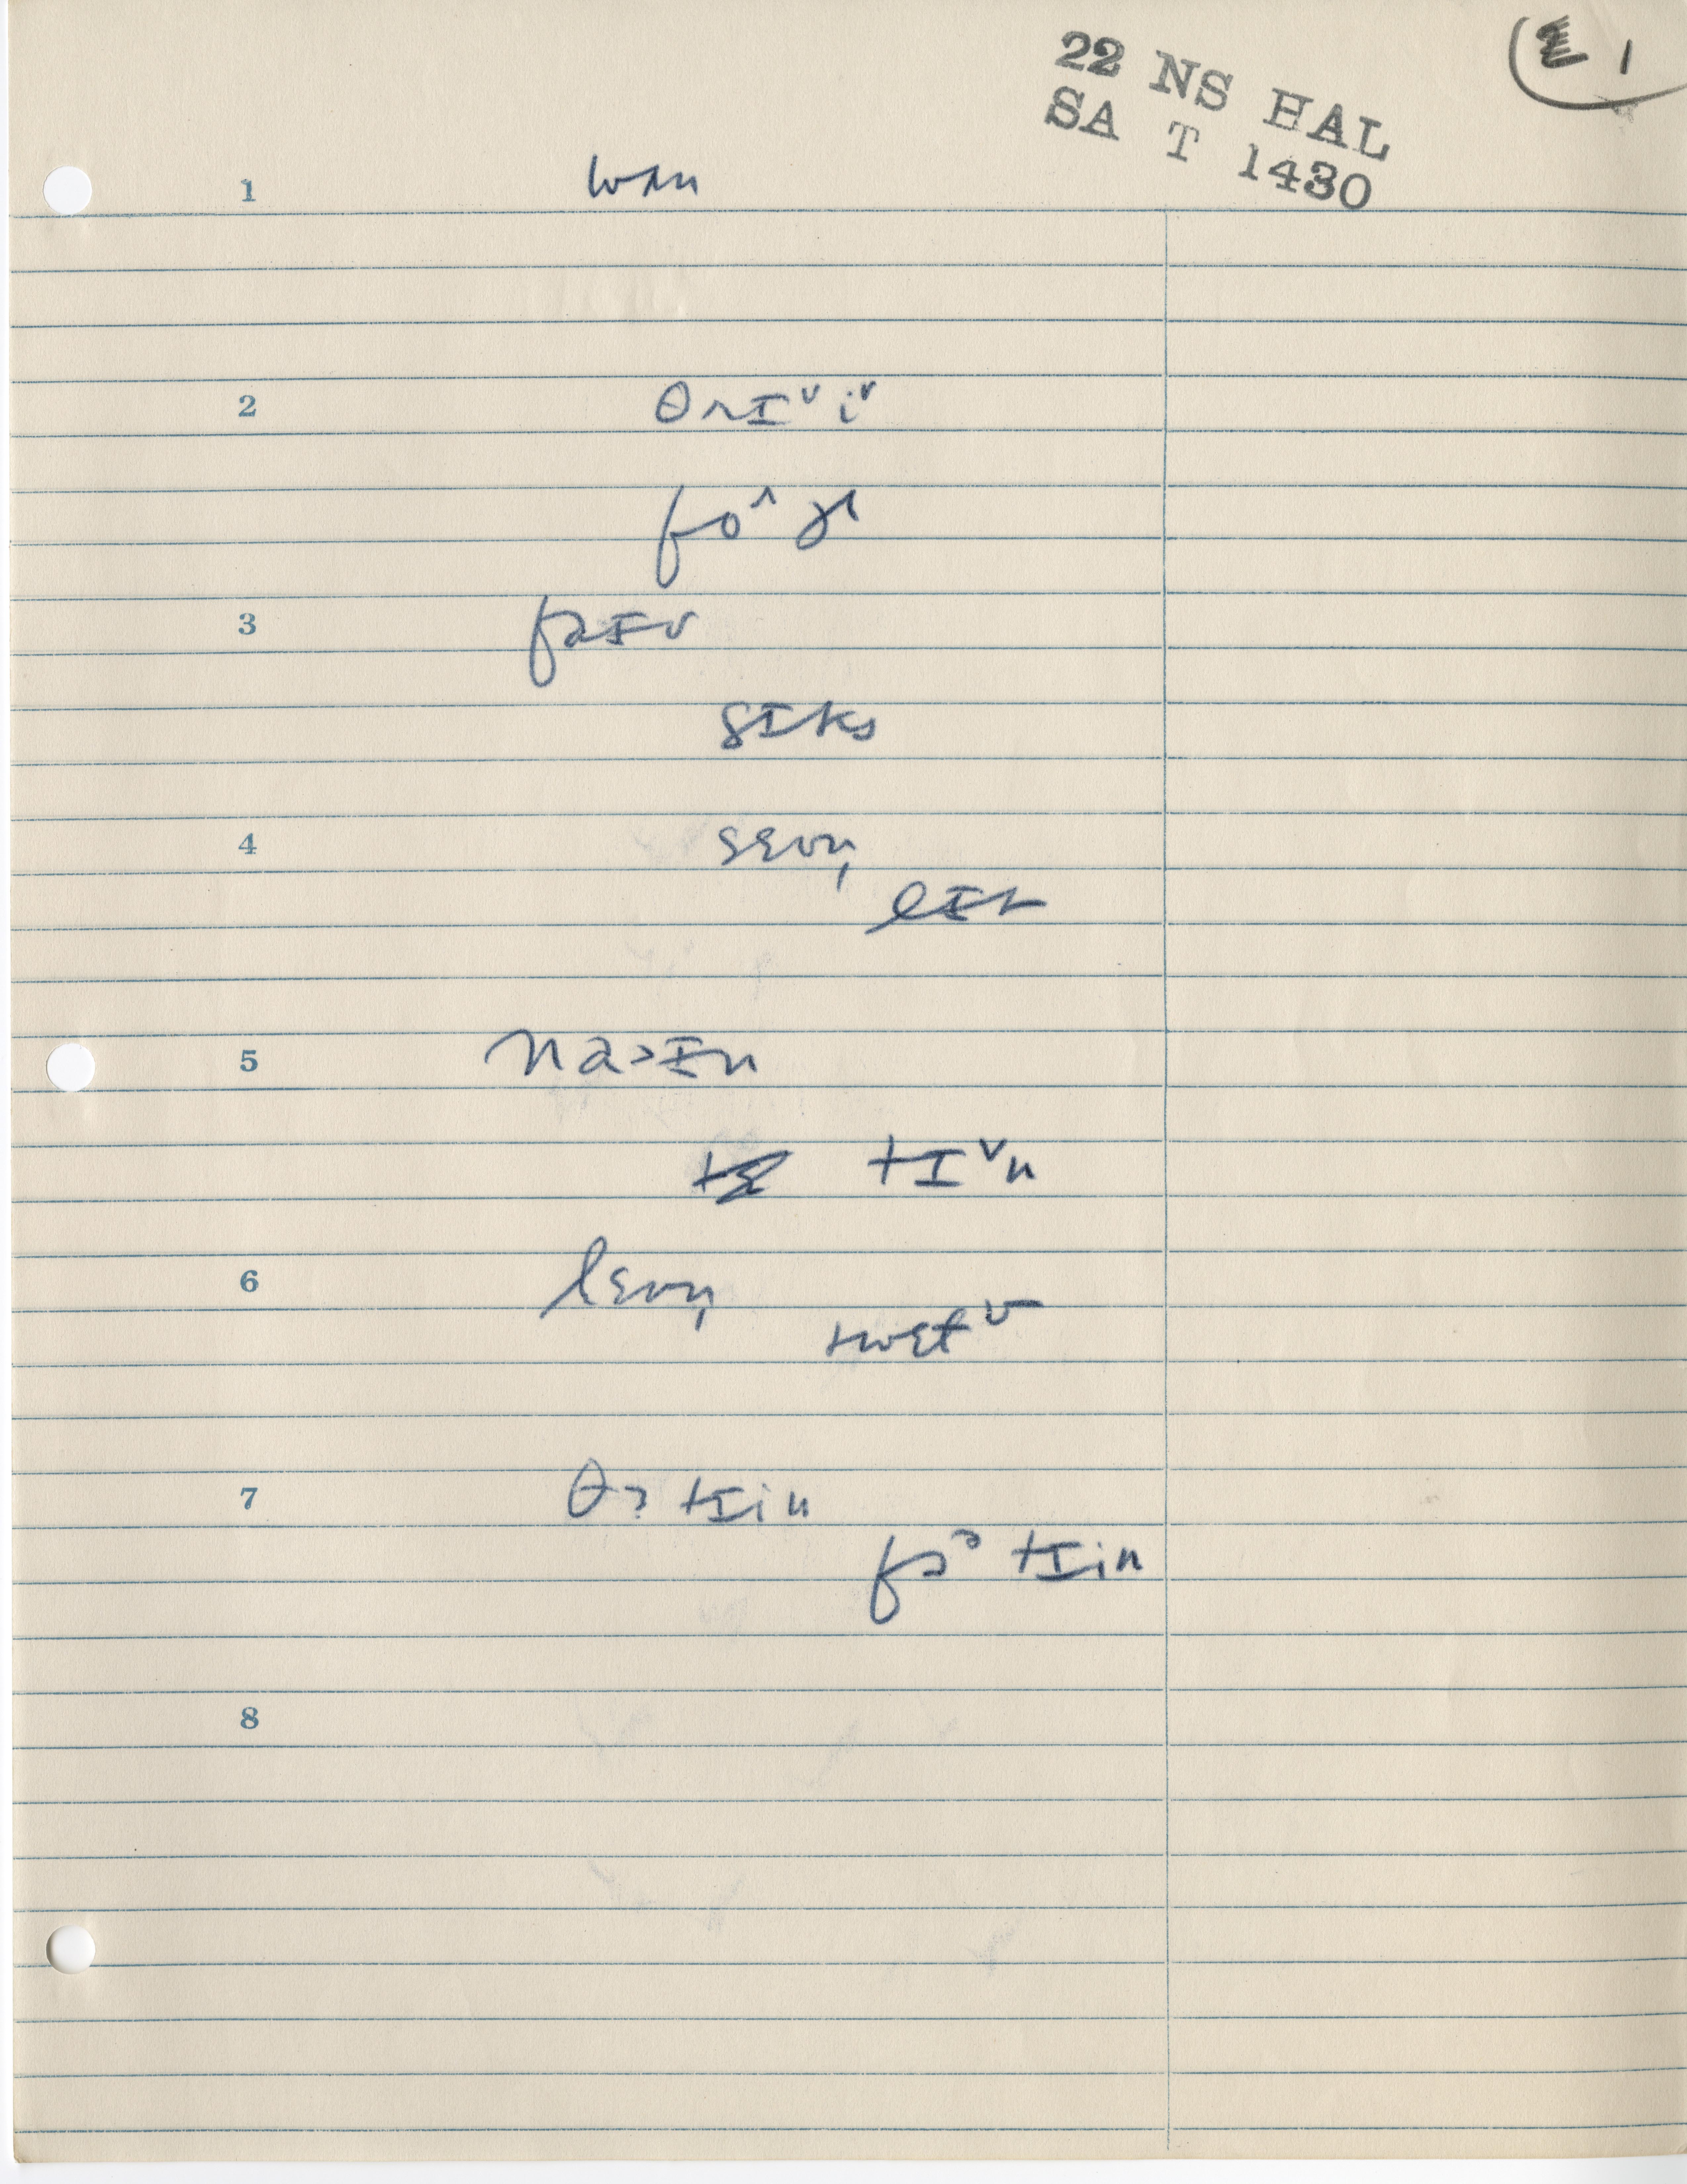 22 NS HAL
SA T 1430
1
1 wʌn
2 θɹɪᵛiᵛ
fo^ɚ
3 faɪv
sɪks
4 sɛvn̩
eɪt
5 na˃ɪn
tɪᵛn
6 lɛvn̩
twɛɫᵛ
7 θɜtɪin
fɔᵊtɪin
8